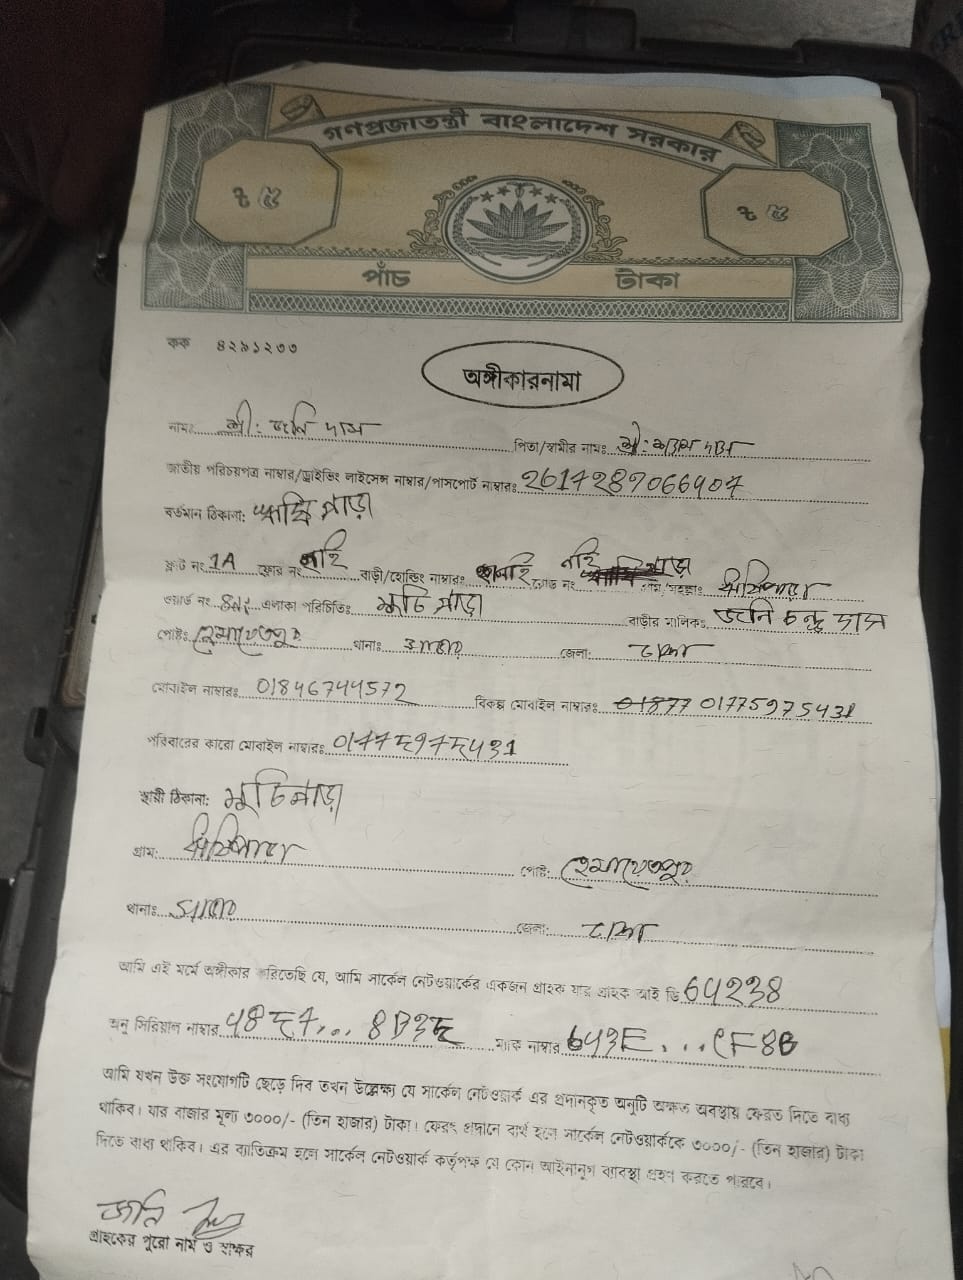 গণপ্রজাতন্ত্রী বাংলাদেশ সরকার
৳ ৫ ৳ ৫
পাঁচ টাকা
কক ৪২৯১২৩৩
অঙ্গীকারনামা
নাম: শ্রী: জনি দাস পিতা/স্বামীর নামঃ শ্রী:
জাতীয় পরিচয়পত্র নাম্বার/ড্রাইভিং লাইসেন্স নাম্বার/পাসপোর্ট নাম্বারঃ 2614289066907
বর্তমান ঠিকানা: ঋষি পাড়া
ফ্লাট নং 1A ফ্লোর নং নাই বাড়ী/হোল্ডিং নাম্বারঃ নাই রোড নং নাই গ্রাম/মহল্লাঃ ঋষিপাড়া
ওয়ার্ড নং এলাকা পরিচিতিঃ মুচি পাড়া বাড়ীর মালিকঃ জনি চন্দ্র দাস
পোষ্টঃ হেমায়েতপুর থানাঃ সাভার জেলা: ঢাকা
মোবাইল নাম্বারঃ 01846744572 বিকল্প মোবাইল নাম্বারঃ 01775975431
পরিবারের কারো মোবাইল নাম্বারঃ 01775975431
স্থায়ী ঠিকানা: মুচিপাড়া
গ্রাম: ঋষিপাড়া পোষ্ট: হেমায়েতপুর
থানাঃ সাভার জেলা: ঢাকা
আমি এই মর্মে অঙ্গীকার করিতেছি যে, আমি সার্কেল নেটওয়ার্কের একজন গ্রাহক যার গ্রাহক আই ডি
অনু সিরিয়াল নাম্বার ম্যাক নাম্বার
আমি যখন উক্ত সংযোগটি ছেড়ে দিব তখন উল্লেক্ষ্য যে সার্কেল নেটওয়ার্ক এর প্রদানকৃত অনুটি অক্ষত অবস্থায় ফেরত দিতে বাধ্য
থাকিব। যার বাজার মূল্য ৩০০০/- (তিন হাজার) টাকা। ফেরৎ প্রদানে ব্যর্থ হলে সার্কেল নেটওয়ার্ককে ৩০০০/- (তিন হাজার) টাকা
দিতে বাধ্য থাকিব। এর ব্যতিক্রম হলে সার্কেল নেটওয়ার্ক কর্তৃপক্ষ যে কোন আইনানুগ ব্যবস্থা গ্রহণ করতে পারবে।
জনি
গ্রাহকের পুরো নাম ও স্বাক্ষর